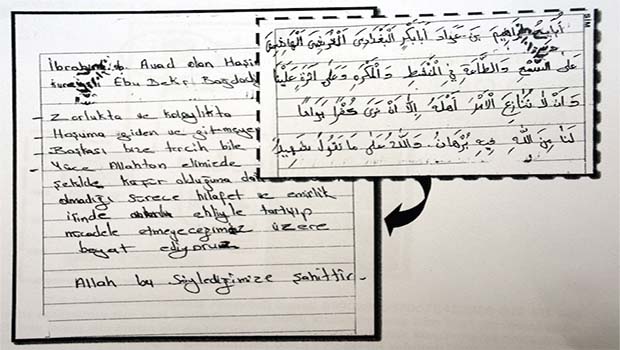 İbrahim b. Avad elan Haşi
Ebu Bekr Bağdady
- Zorlukta ve kolaylıkta
Hoşuma giden ve gitmeyen
- Başkası bize tercih bile
Yüce Allahtan elimizde
şekilde küfür olduğuna
olmadığı sürece hilafet ve emirlik
işinde ehliyle tartışıp
mücadele etmeyeceğimiz üzere
beyat ediyoruz
Allah bu söylediğimize şahittir.
أبايع إبراهيم بن عواد أبابكر البغدادي القرشي الهاشمي
على السمع والطاعة في المنشط والمكره وعلى أثرة علينا
وأن لا ننازع الأمر أهله إلا أن نرى كفرا بواحا
لنا من الله فيه برهان. والله على ما نقول شهيد